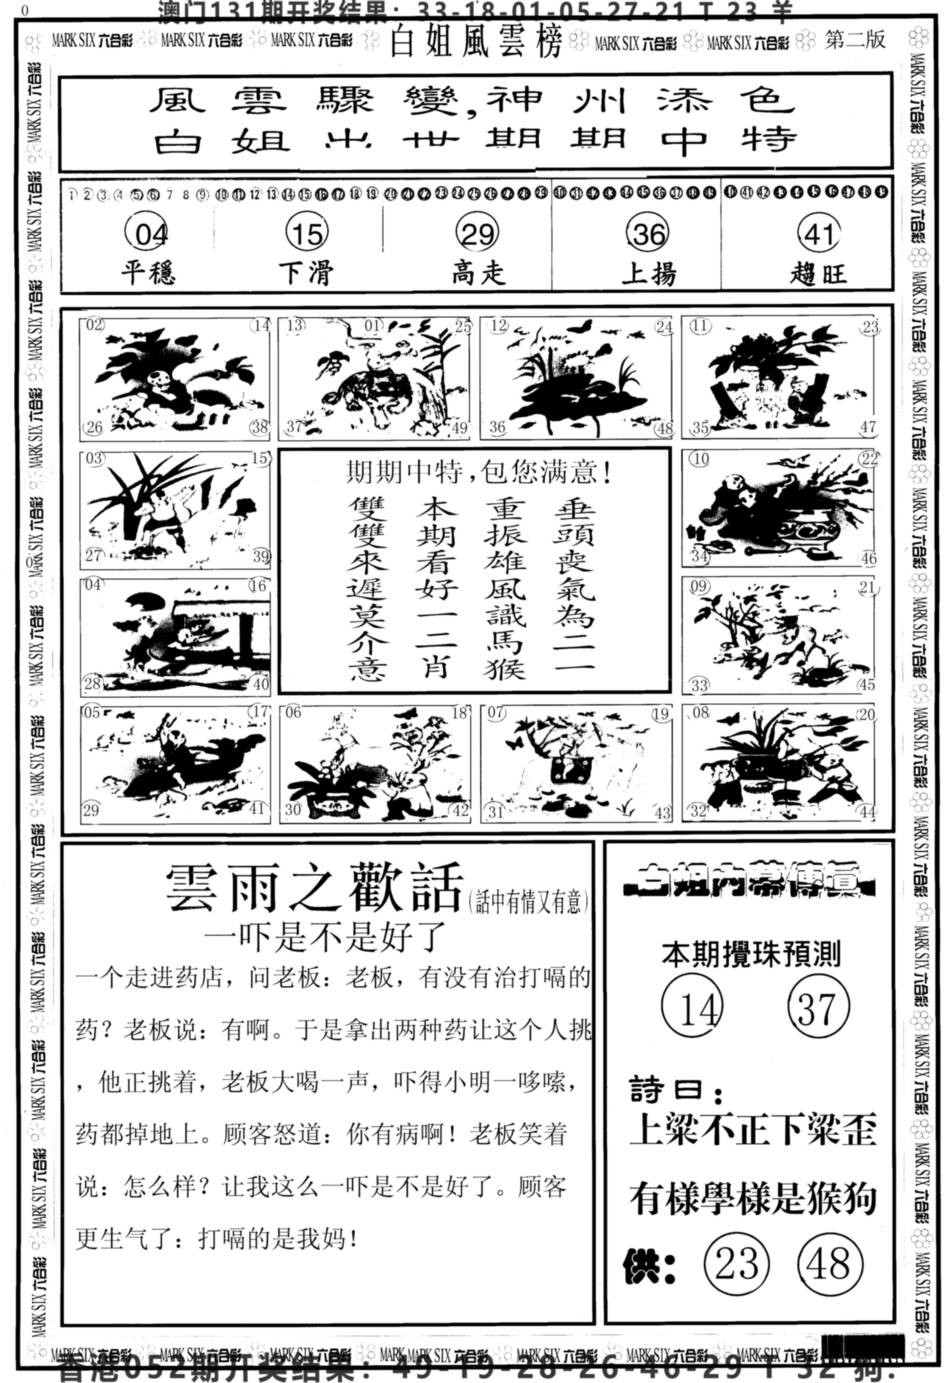 0
澳门131期开奖结果：33-18-01-05-27-21 T 23 羊
MARK SIX 六合彩 MARK SIX 六合彩 MARK SIX 六合彩 白姐風雲榜 MARK SIX 六合彩 MARK SIX 六合彩 第二版
風雲驟變,神州添色
白姐出世期期中特
1 2 3 4 5 6 7 8 9 10 11 12 13 14 15 16 17 18 19 20 21 22 23 24 25 26 27 28 29 30 31 32 33 34 35 36 37 38 39 40 41 42 43 44 45 46 47 48 49
04 15 29 36 41
平穩 下滑 高走 上揚 趨旺
02 14 13 01 25 12 24 11 23
26 38 37 49 36 48 35 47
03 15 10 22
27 39 34 46
04 16 09 21
28 40 33 45
期期中特,包您满意!
垂頭喪氣為二一
重振雄風識馬猴
本期看好一二肖
雙雙來遲莫介意
05 17 06 18 07 19 08 20
29 41 30 42 31 43 32 44
雲雨之歡話(話中有情又有意)
一吓是不是好了
一个走进药店，问老板：老板，有没有治打嗝的
药？老板说：有啊。于是拿出两种药让这个人挑
，他正挑着，老板大喝一声，吓得小明一哆嗦，
药都掉地上。顾客怒道：你有病啊！老板笑着
说：怎么样？让我这么一吓是不是好了。顾客
更生气了：打嗝的是我妈！
白姐内幕傳真
本期攪珠預測
14 37
詩曰：
上粱不正下粱歪
有樣學樣是猴狗
供：23 48
MARK SIX 六合彩 MARK SIX 六合彩 MARK SIX 六合彩 MARK SIX 六合彩 MARK SIX 六合彩 MARK SIX 六合彩 MARK SIX 六合彩
香港052期开奖结果：49-19-28-26-46-29 T 32 狗.